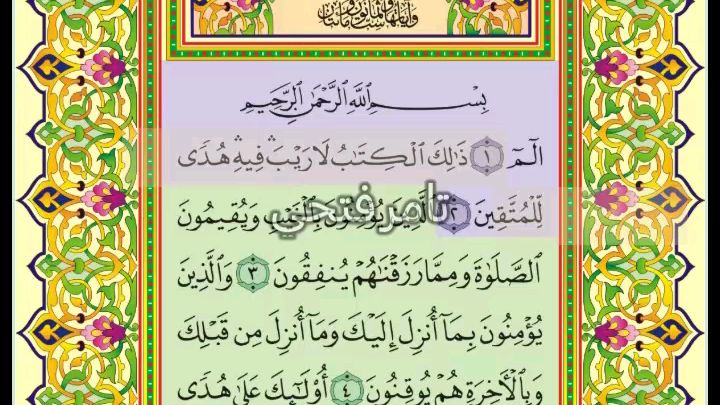 بِسْمِ ٱللَّهِ ٱلرَّحْمَٰنِ ٱلرَّحِيمِ
الٓمٓ ١ ذَٰلِكَ ٱلْكِتَٰبُ لَا رَيْبَ ۛ فِيهِ ۛ هُدًى
لِّلْمُتَّقِينَ ٢ ٱلَّذِينَ يُؤْمِنُونَ بِٱلْغَيْبِ وَيُقِيمُونَ
تامر فتحي
ٱلصَّلَوٰةَ وَمِمَّا رَزَقْنَٰهُمْ يُنفِقُونَ ٣ وَٱلَّذِينَ
يُؤْمِنُونَ بِمَآ أُنزِلَ إِلَيْكَ وَمَآ أُنزِلَ مِن قَبْلِكَ
وَبِٱلْءَاخِرَةِ هُمْ يُوقِنُونَ ٤ أُو۟لَٰٓئِكَ عَلَىٰ هُدًى